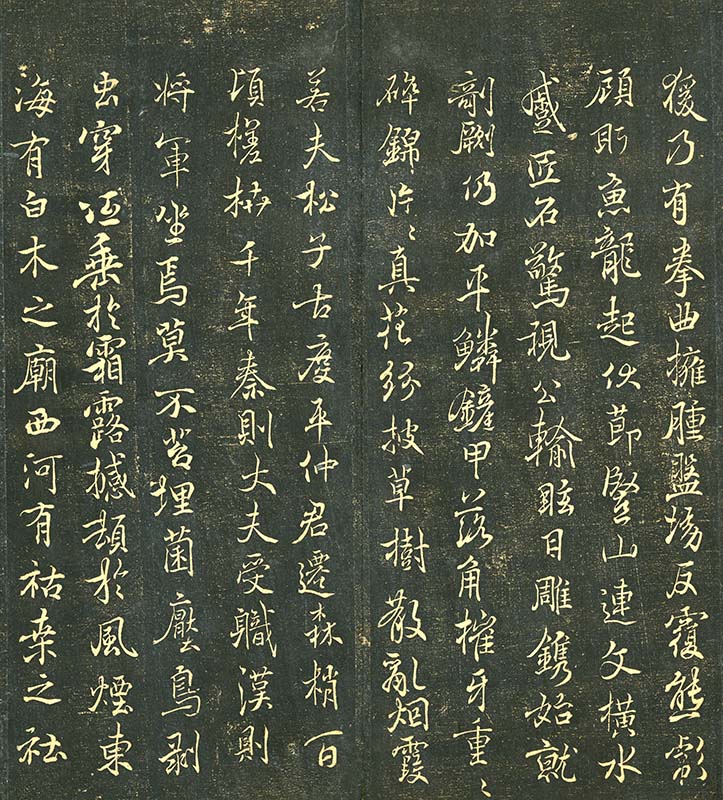 猨乃有拳曲擁腫盤坳反覆熊彪
顧盼魚龍起伏節豎山連文橫水
蹙匠石驚視公輸眩目雕鐫始就
剞劂仍加平鱗鏟甲落角摧牙重〻
碎錦片〻真花紛披草樹散亂烟霞
若夫松子古度平仲君遷森梢百
頃槎枿千年秦則大夫受職漢則
將軍坐焉莫不苔埋菌壓鳥剥
虫穿低垂於霜露撼頓於風煙東
海有白木之廟西河有枯桑之社